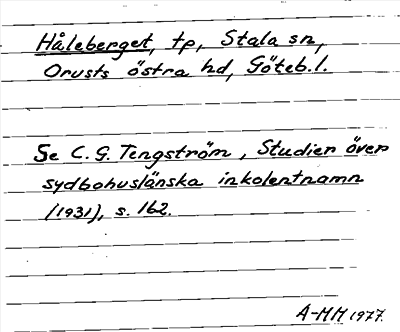 Håleberget, tp, Stala sn,
Orusts östra hd, Göteb.l.
Se C.G. Tengström, Studier över
sydbohuslänska inkolentnamn
(1931), s. 162.
A-MM 1977.